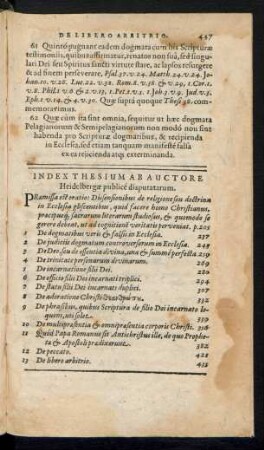 DE LIBERO ARBITRIO. 447
61 Quintò pugnant eadem dogmata cum his Scripturæ
testimoniis, quibus affirmatur, renatos non suâ, sed singu-
lari Dei seu Spiritus sancti virtute stare, ac lapsos resurgere
& ad finem perseverare, Psal. 37. v. 24. March. 24. v. 24. Jo-
han. 10. v. 28. Luc. 22. v. 32. Rom. 8. v. 38 & v. 29, 1. Cor. 1.
v. 8. Phil. 1 v. 6 & 2. v. 13. 1. Pet. 1. v. 5. 1 Joh. 3 v. 9. Jud. v. 5
Eph. 1. v. 14, & 4. v. 30. Quæ suprà quoque Thesi commemo-
moravimus.
62 Quæ cùm ita sint omnia, sequitur ut hæc dogmata
Pelagianorum & Semipelagianorum non modò non sint
habenda pro Scripturæ dogmatibus, & recipienda
in Ecclesia, sed etiam tanquam manifestè falsa
ex ea rejicienda atq; exterminanda.
INDEX THESIUM AB AUCTORE
Heidelbergæ publicè disputatarum.
PRæmissa est oratio: Dissensionibus de religione seu doctrina
in Ecclesia gliscentibus, quid facere homo Christianus,
præcipueq; sacrarum literarum studiosus, & quomodo se
gerere debeat, ut ad cognitionem veritatis perveniat. p. 203
1 De dogmatibus veris & falsis in Ecclesia. 232
2 De judiciis dogmatum controversorum in Ecclesia. 247
3 De Deo, seu de essentia divina, una & summè perfecta 259
4 De trinitate personarum divinarum.
5 De incarnatione filii Dei.
6 De officio filii Dei incarnati triplici. 294
7 De statu filii Dei incarnati duplici.
8 De adoratione Christi
9 De phrasibus, quibus Scriptura de filio Dei incarnato lo-
quens, uti solet. 359
10 De multipræsentia & omnipræsentia corporis Christi. 378
11 Quòd Papa Romanus sit Antichristus ille, de quo Prophe-
ta & Apostoli prædixerunt.
12 De peccato. 422
13 De libero arbitrio. 435